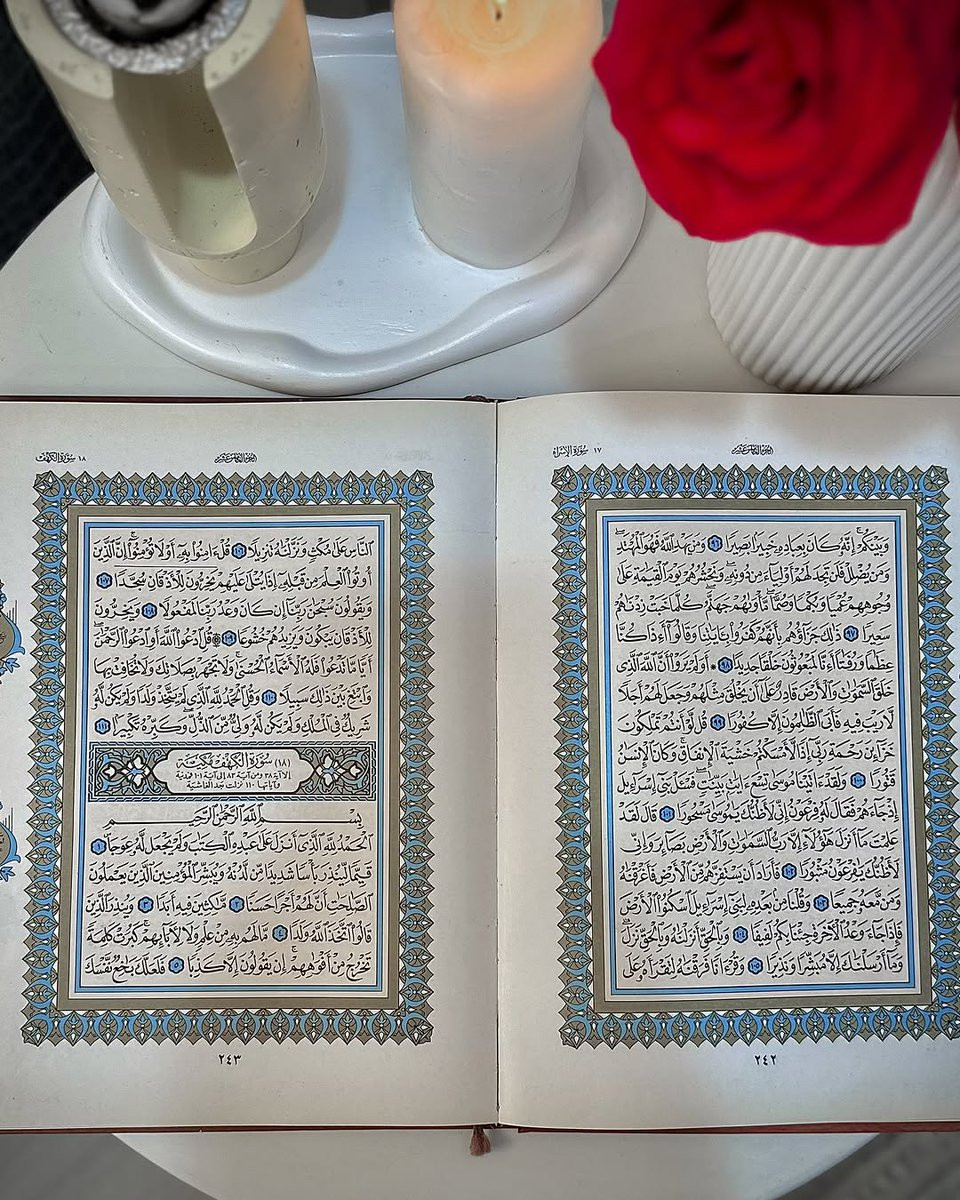 ١٧ سُورَةُ الإِسْرَاءِ
الجزء الخامس عشر
وَبَيْنَكُمْ إِنَّهُ كَانَ بِعِبَادِهِ خَبِيرًا بَصِيرًا ٩٦ وَمَن يَهْدِ اللَّهُ فَهُوَ الْمُهْتَدِ
وَمَن يُضْلِلْ فَلَن تَجِدَ لَهُمْ أَوْلِيَاءَ مِن دُونِهِ وَنَحْشُرُهُمْ يَوْمَ الْقِيَمَةِ عَلَى
وُجُوهِهِمْ عُمْيًا وَبُكْمًا وَصُمًّا مَّأْوَىهُمْ جَهَنَّمُ كُلَّمَا خَبَتْ زِدْنَهُمْ
سَعِيرًا ٩٧ ذَلِكَ جَزَاؤُهُم بِأَنَّهُمْ كَفَرُوا بِـَٔايَتِنَا وَقَالُوا أَءِذَا كُنَّا
عِظَمًا وَرُفَتًا أَءِنَّا لَمَبْعُوثُونَ خَلْقًا جَدِيدًا ٩٨ أَوَلَمْ يَرَوْا أَنَّ اللَّهَ الَّذِى
خَلَقَ السَّمَوَتِ وَالْأَرْضَ قَادِرٌ عَلَى أَن يَخْلُقَ مِثْلَهُمْ وَجَعَلَ لَهُمْ أَجَلًا
لَّا رَيْبَ فِيهِ فَأَبَى الظَّلِمُونَ إِلَّا كُفُورًا ٩٩ قُل لَّوْ أَنتُمْ تَمْلِكُونَ
خَزَائِنَ رَحْمَةِ رَبِّى إِذًا لَّأَمْسَكْتُمْ خَشْيَةَ الْإِنفَاقِ وَكَانَ الْإِنسَنُ
قَتُورًا ١٠٠ وَلَقَدْ ءَاتَيْنَا مُوسَى تِسْعَ ءَايَتٍ بَيِّنَتٍ فَسْـَٔلْ بَنِى إِسْرَءِيلَ
إِذْ جَاءَهُمْ فَقَالَ لَهُ فِرْعَوْنُ إِنِّى لَأَظُنُّكَ يَمُوسَى مَسْحُورًا ١٠١ قَالَ لَقَدْ
عَلِمْتَ مَا أَنزَلَ هَؤُلَاءِ إِلَّا رَبُّ السَّمَوَتِ وَالْأَرْضِ بَصَائِرَ وَإِنِّى
لَأَظُنُّكَ يَفِرْعَوْنُ مَثْبُورًا ١٠٢ فَأَرَادَ أَن يَسْتَفِزَّهُم مِّنَ الْأَرْضِ فَأَغْرَقْنَهُ
وَمَن مَّعَهُ جَمِيعًا ١٠٣ وَقُلْنَا مِن بَعْدِهِ لِبَنِى إِسْرَءِيلَ اسْكُنُوا الْأَرْضَ
فَإِذَا جَاءَ وَعْدُ الْآخِرَةِ جِئْنَا بِكُمْ لَفِيفًا ١٠٤ وَبِالْحَقِّ أَنزَلْنَهُ وَبِالْحَقِّ نَزَلَ
وَمَا أَرْسَلْنَكَ إِلَّا مُبَشِّرًا وَنَذِيرًا ١٠٥ وَقُرْءَانًا فَرَقْنَهُ لِتَقْرَأَهُ عَلَى
٢٤٢
الجزء الخامس عشر
١٨ سُورَةُ الكَهْفِ
النَّاسِ عَلَى مُكْثٍ وَنَزَّلْنَهُ تَنزِيلًا ١٠٦ قُلْ ءَامِنُوا بِهِ أَوْ لَا تُؤْمِنُوا إِنَّ الَّذِينَ
أُوتُوا الْعِلْمَ مِن قَبْلِهِ إِذَا يُتْلَى عَلَيْهِمْ يَخِرُّونَ لِلْأَذْقَانِ سُجَّدًا ١٠٧
وَيَقُولُونَ سُبْحَنَ رَبِّنَا إِن كَانَ وَعْدُ رَبِّنَا لَمَفْعُولًا ١٠٨ وَيَخِرُّونَ
لِلْأَذْقَانِ يَبْكُونَ وَيَزِيدُهُمْ خُشُوعًا ١٠٩ قُلِ ادْعُوا اللَّهَ أَوِ ادْعُوا الرَّحْمَنَ
أَيًّا مَّا تَدْعُوا فَلَهُ الْأَسْمَاءُ الْحُسْنَى وَلَا تَجْهَرْ بِصَلَاتِكَ وَلَا تُخَافِتْ بِهَا
وَابْتَغِ بَيْنَ ذَلِكَ سَبِيلًا ١١٠ وَقُلِ الْحَمْدُ لِلَّهِ الَّذِى لَمْ يَتَّخِذْ وَلَدًا وَلَمْ يَكُن لَّهُ
شَرِيكٌ فِى الْمُلْكِ وَلَمْ يَكُن لَّهُ وَلِىٌّ مِّنَ الذُّلِّ وَكَبِّرْهُ تَكْبِيرًا ١١١
(١٨) سُورَةُ الكَهْفِ مَكِّيَّة
إلا آية ٣٨ ومن آية ٨٣ إلى آية ١٠١ فمدنية
وآياتها ١١٠ نزلت بعد الغاشية
بِسْمِ اللَّهِ الرَّحْمَنِ الرَّحِيمِ
الْحَمْدُ لِلَّهِ الَّذِى أَنزَلَ عَلَى عَبْدِهِ الْكِتَبَ وَلَمْ يَجْعَل لَّهُ عِوَجَا ١
قَيِّمًا لِّيُنذِرَ بَأْسًا شَدِيدًا مِّن لَّدُنْهُ وَيُبَشِّرَ الْمُؤْمِنِينَ الَّذِينَ يَعْمَلُونَ
الصَّلِحَتِ أَنَّ لَهُمْ أَجْرًا حَسَنًا ٢ مَّكِثِينَ فِيهِ أَبَدًا ٣ وَيُنذِرَ الَّذِينَ
قَالُوا اتَّخَذَ اللَّهُ وَلَدًا ٤ مَّا لَهُم بِهِ مِنْ عِلْمٍ وَلَا لِآبَائِهِمْ كَبُرَتْ كَلِمَةً
تَخْرُجُ مِنْ أَفْوَهِهِمْ إِن يَقُولُونَ إِلَّا كَذِبًا ٥ فَلَعَلَّكَ بَخِعٌ نَّفْسَكَ
٢٤٣